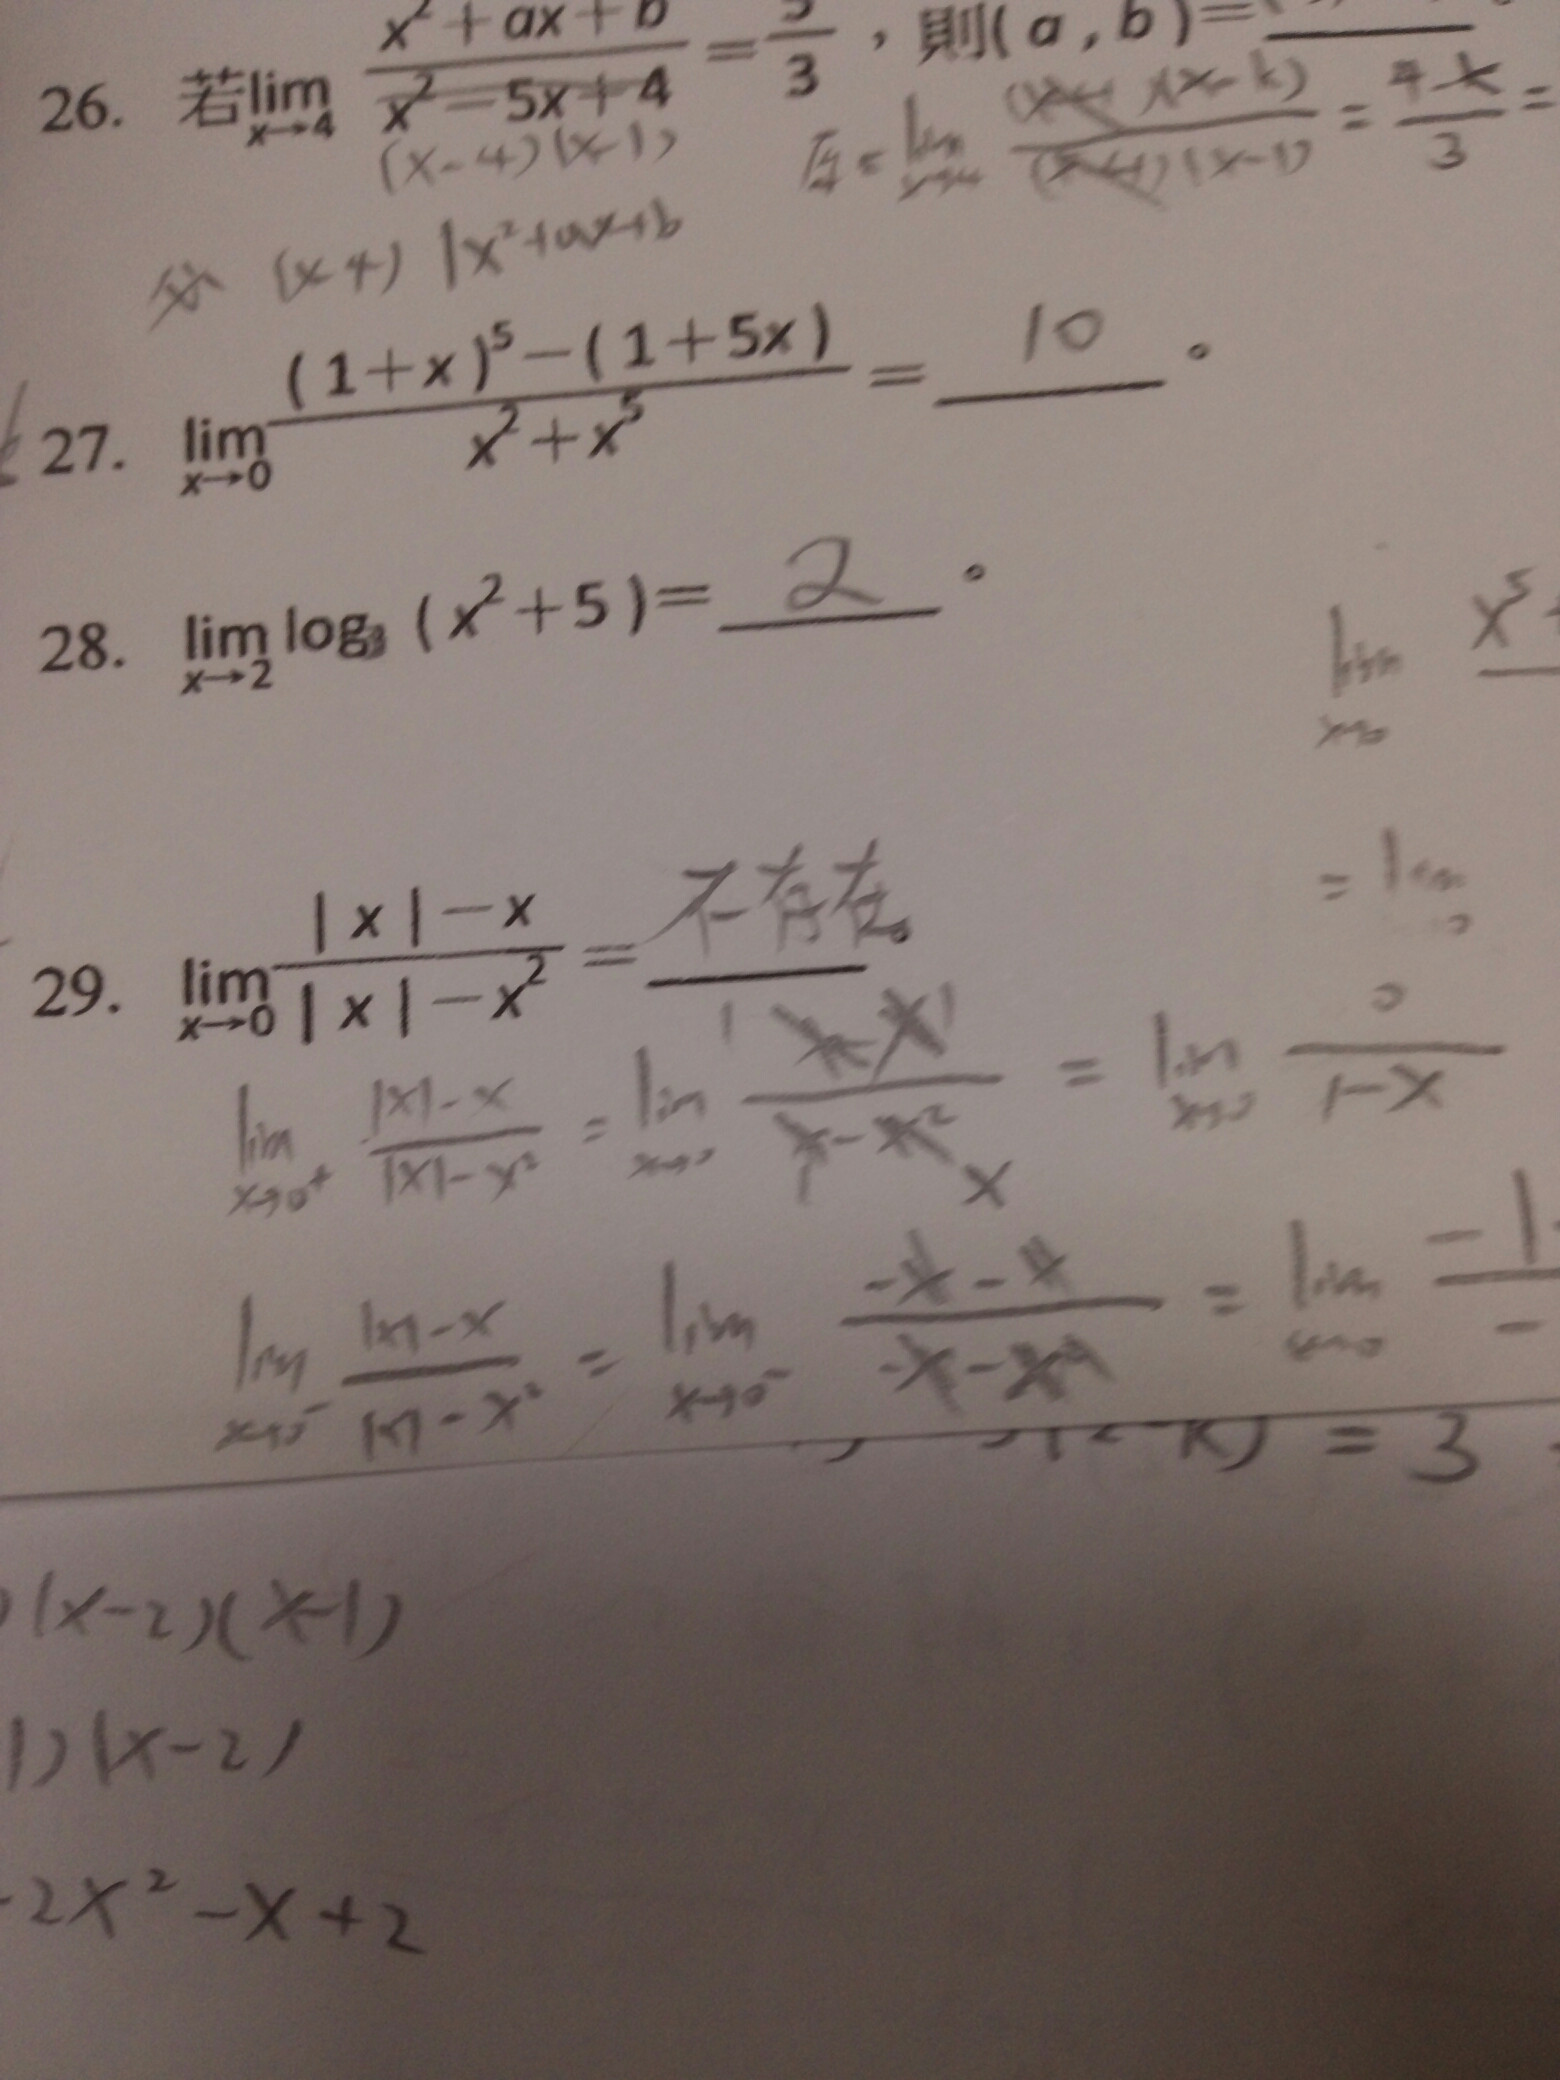 26. 若lim x→4 x²+ax+b / x²-5x+4 = /3，則(a,b)=
(x-4)(x-1)
原= lim (x-k) / (x-4)(x-1) = 4-k / 3 =
(x-4) | x²+ax+b
27. lim x→0 (1+x)⁵-(1+5x) / x²+x⁵ = 10 。
28. lim x→2 log₃(x²+5)= 2 。
lim x→0 x⁵
= lim
29. lim x→0 |x|-x / |x|-x² = 不存在。
lim x→0⁺ |x|-x / |x|-x² = lim x→0 x-x / x-x² = lim x→0 0 / 1-x
lim x→0⁻ |x|-x / |x|-x² = lim x→0⁻ -x-x / -x-x² = lim x→0 -1 / -
(2-k) = 3
(x-2)(x-1)
1)(x-2)
-2x²-x+2